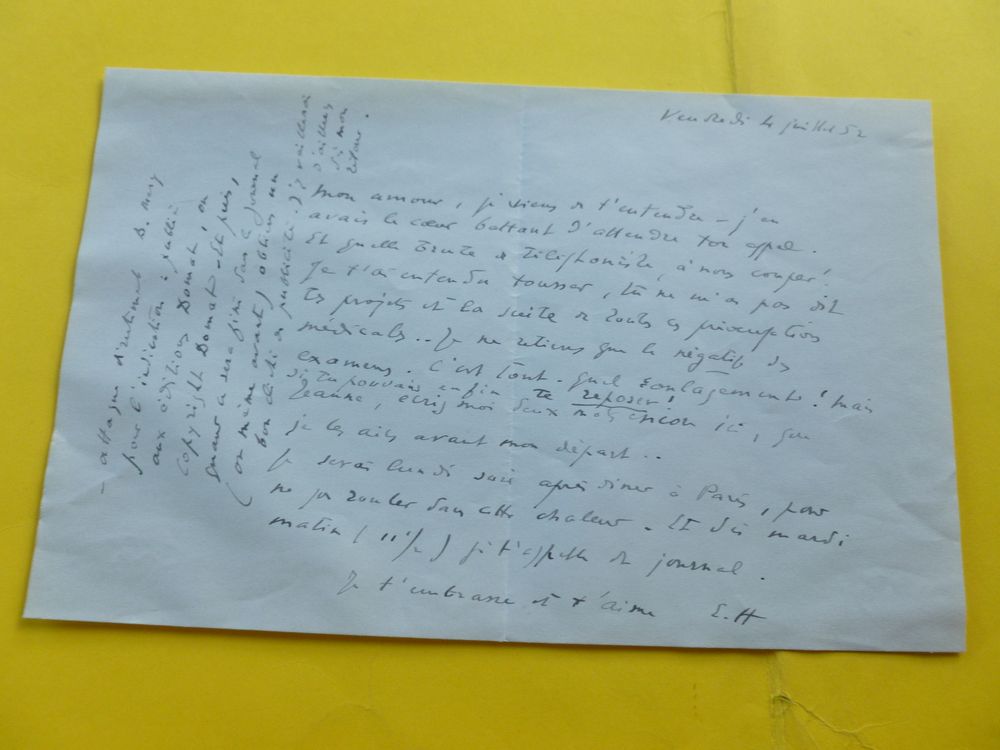 Vendredi 4 juillet 52
Mon amour, je viens de t'entendre – j'en
avais le cœur battant d'attendre ton appel.
Et quelle brute de téléphoniste, à nous couper!
Je t'ai entendu tousser, tu ne m'as pas dit
tes projets et la suite de toutes ces prescriptions
médicales.. Je ne retiens que le négatif des
examens. C'est tout. Quel soulagement! Mais
si tu pouvais enfin te reposer!
Jeanne, écris moi deux mots encore ici, que
je les aies avant mon départ..
Je serai lundi soir après dîner à Paris, pour
ne pas rouler dans cette chaleur. Et dès mardi
matin (11h) je t'appelle du journal.
Je t'embrasse et t'aime E.H
– attaque directement D. Mery
pour l'indication : publié
aux éditions Domat, ou
copyright Domat. Et puis,
quand ce sera fini dans le journal
(ou même avant) obtiens un
bon de publicité. J'y veillerai
d'ailleurs
dès mon
retour.